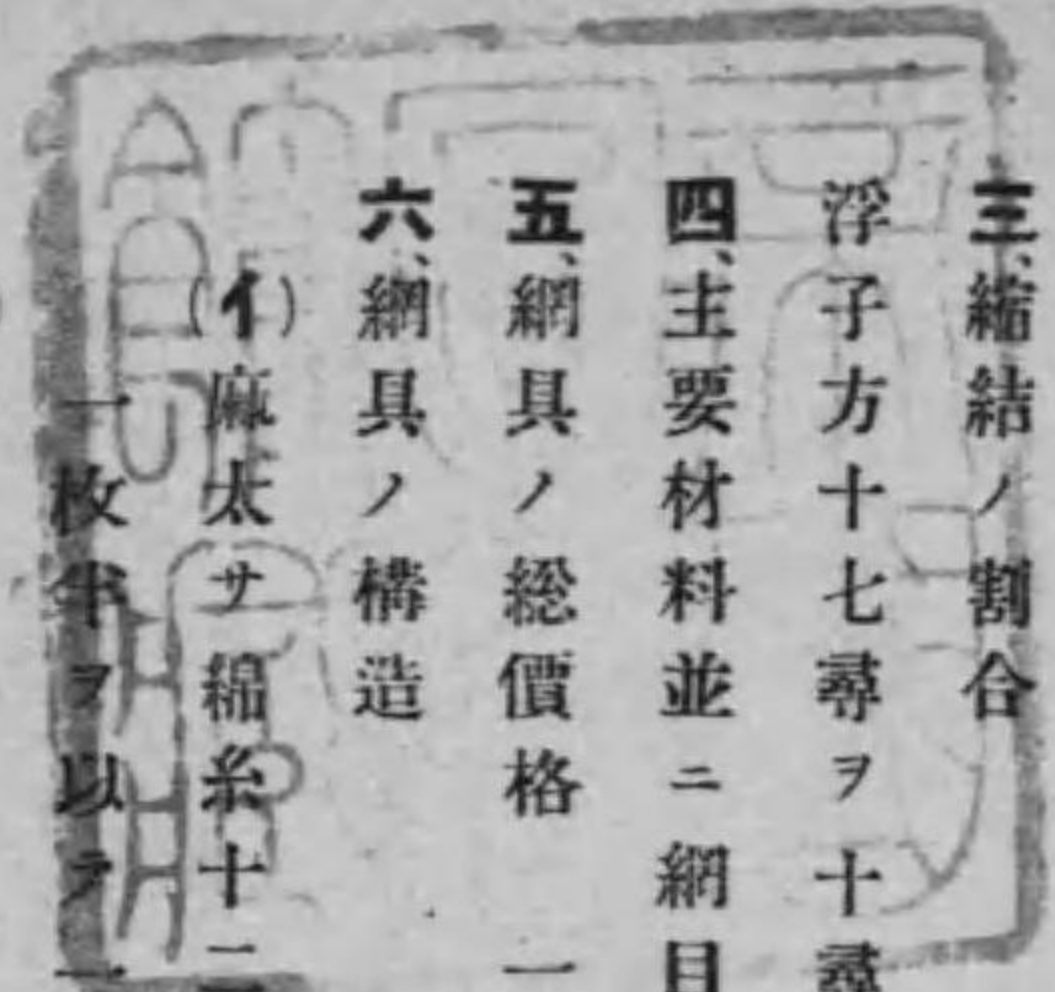 三、縮結ノ割合
浮子方十七尋ヲ十尋
四、主要材料並ニ網目
五、網具ノ総價格　一
六、網具ノ構造
(イ)麻太サ綿糸十二
一枚半ヲ以テ一